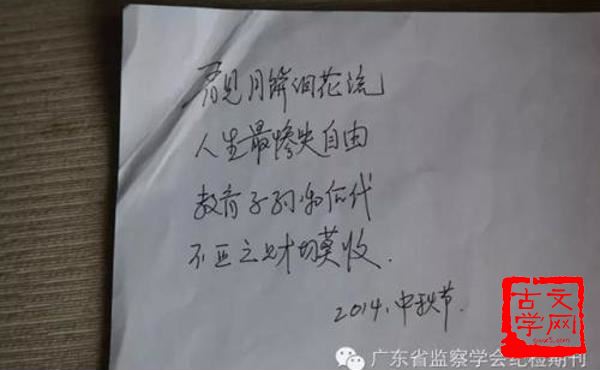 看见月饼泪花流
人生最惨失自由
教育子孙后代
不正之财切莫收.
2014.中秋节.
古文
学网
广东省监察学会纪检期刊